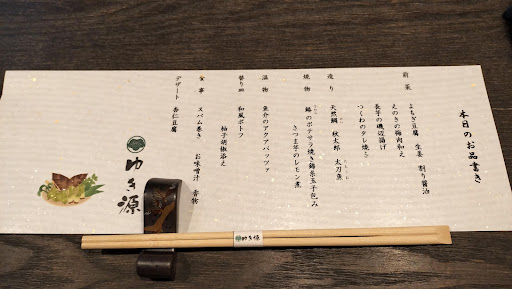 本日のお品書き
前菜
よもぎ豆腐 生姜 割り醤油
えのきの梅肉和え
長芋の磯辺揚げ
つくわのタレ焼き
造り
天然鯛 秋太郎 太刀魚
焼物
鰆のポテサラ焼き錦糸玉子包み
さつま芋のレモン煮
温物
魚介のアクアパッツァ
替り皿
和風ポトフ
柚子胡椒添え
食事
スパム巻き お味噌汁 香物
デザート
杏仁豆腐
ゆき源
ゆき源